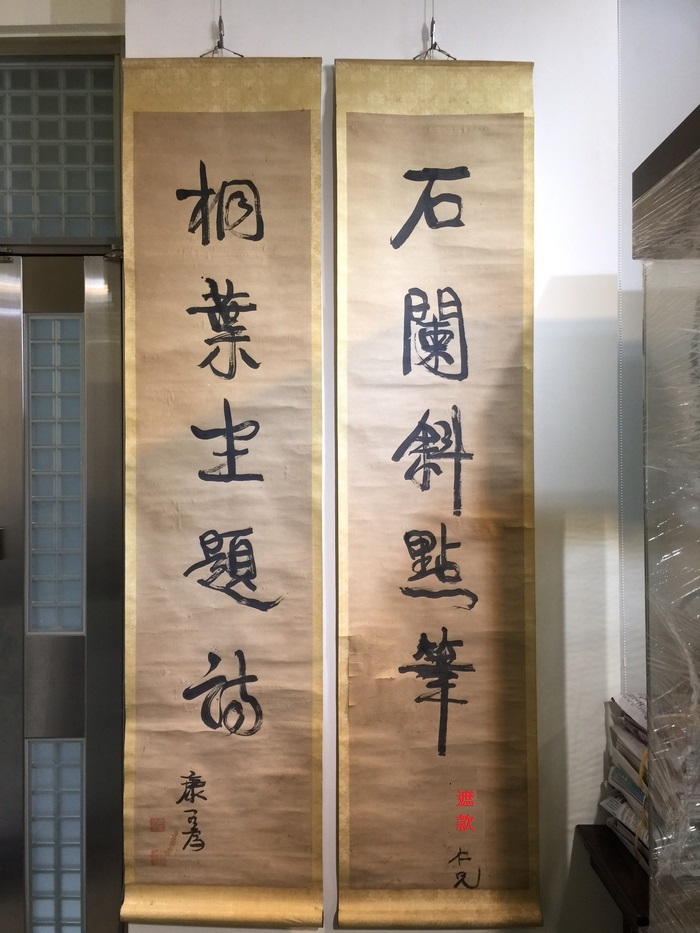 石闌斜點筆
遮款
仁兄
桐葉坐題詩
康有為